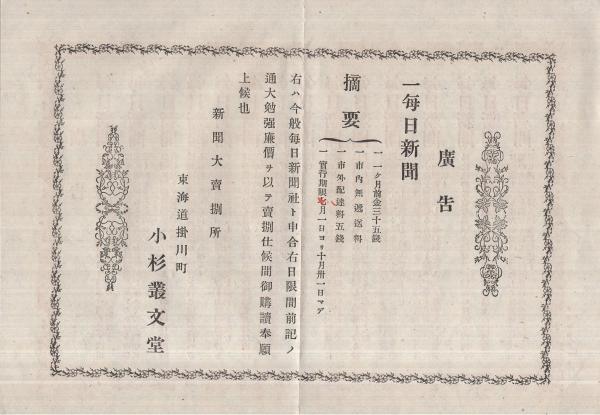 廣告
一每日新聞
摘要
一一ケ月前金三十五錢
一市內無遞送料
一市外配達料五錢
一實行期限七月一日ヨリ十月卅一日マデ
右ハ今般每日新聞社ト申合右日限間前記ノ
通大勉强廉價ヲ以テ賣捌仕候間御購讀奉願
上候也
新聞大賣捌所
東海道掛川町
小杉叢文堂